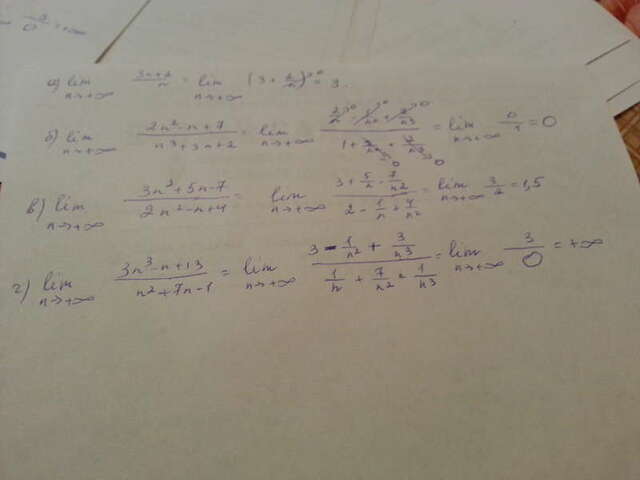 3/0 = +∞
а) lim n→+∞ (3n+2)/n = lim n→+∞ (3 + 2/n) →0 = 3
б) lim n→+∞ (2n²-n+7)/(n³+3n+2) = lim n→+∞ = lim n→+∞ 0/1 = 0
в) lim n→+∞ (3n²+5n-7)/(2n²-n+4) = lim n→+∞ (3 + 5/n - 7/n²)/(2 - 1/n + 4/n²) = lim n→+∞ 3/2 = 1,5
г) lim n→+∞ (3n³-n+13)/(n²+7n-1) = lim n→+∞ (3 - 1/n² + 3/n³)/(1/n + 7/n² - 1/n³) = lim n→+∞ 3/0 = +∞